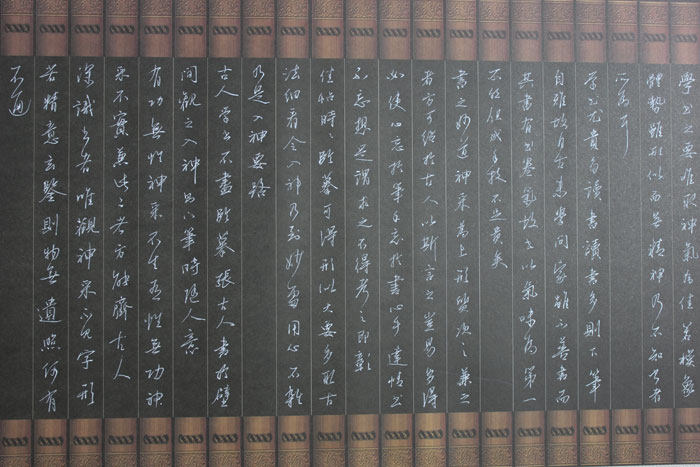 學書之要唯取神氣為佳若模象
體勢雖形似而無精神乃不知書者
所為耳
學書尤貴多讀書讀書多則下筆
自雅故自古來學問家雖不善書而
其書有書卷氣故書以氣味為第一
不然但成手技不足貴矣
書之妙道神采為上形質次之兼之
者方可紹於古人以斯言之豈易多得
必使心忘於筆手忘於書心手達情書
不忘想是謂求之不得考之即彰
佳帖時時臨摹可得形似大要多取古
法細看令入神乃到妙處用心不雜
乃是入神要路
古人學書不盡臨摹張古人書於壁
間觀之入神則下筆時隨人意
有功無性神采不生有性無功神
采不實兼此二者方能齊古人
深識書者唯觀神采不見字形
若精意玄鑒則物無遺照何有
不通